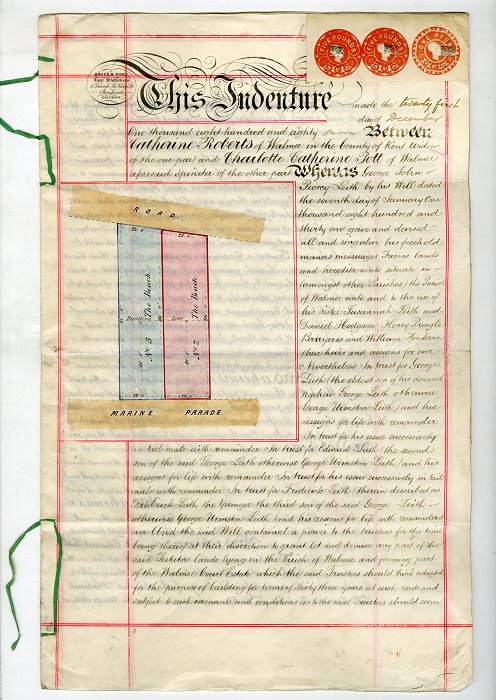 FIVE POUNDS
FIVE POUNDS
POUNDS
This Indenture made the twenty first
day of December
One thousand eight hundred and eighty seven Between
Catherine Roberts of Walmer in the County of Kent Widow
of the one part and Charlotte Catherine Pott of Walmer
aforesaid Spinster of the other part Whereas George John
Leith by his Will dated
the seventh day of January One
thousand eight hundred and
thirty one gave and devised
all and singular his freehold
manors messuages Farms lands
and hereditaments situate in
(amongst other Parishes) the Parish
of Walmer unto and to the use of
his Sister Susannah Leith and
Daniel Hodgson Henry Pringle
Bruyeres and William Henderson
their heirs and assigns for ever
Nevertheless In trust for George
Leith (the eldest son of his deceased
Nephew George Leith otherwise
George Urmston Leith) and his
assigns for life with remainder
In trust for his issue successively
in tail male with remainder In trust for Edward Leith (the second
son of the said George Leith otherwise George Urmston Leith) and his
assigns for life with remainder In trust for his issue successively in tail
male with remainder In trust for Frederick Leith (therein described as
Frederick Leith the Younger the third son of the said George Leith
otherwise George Urmston Leith) and his assigns for life with remainders
over And the said Will contained a power to the trustees for the time
being thereof at their discretion to grant let and demise any part of the
said Testators lands lying in the Parish of Walmer and forming part
of the Walmer Court Estate which the said Trustees should think adapted
for the purpose of building for terms of sixty three years at such rents and
subject to such covenants and conditions as to the said Trustees should seem
ROAD
No 3 The Beach
No 2 The Beach
Building Line
MARINE PARADE